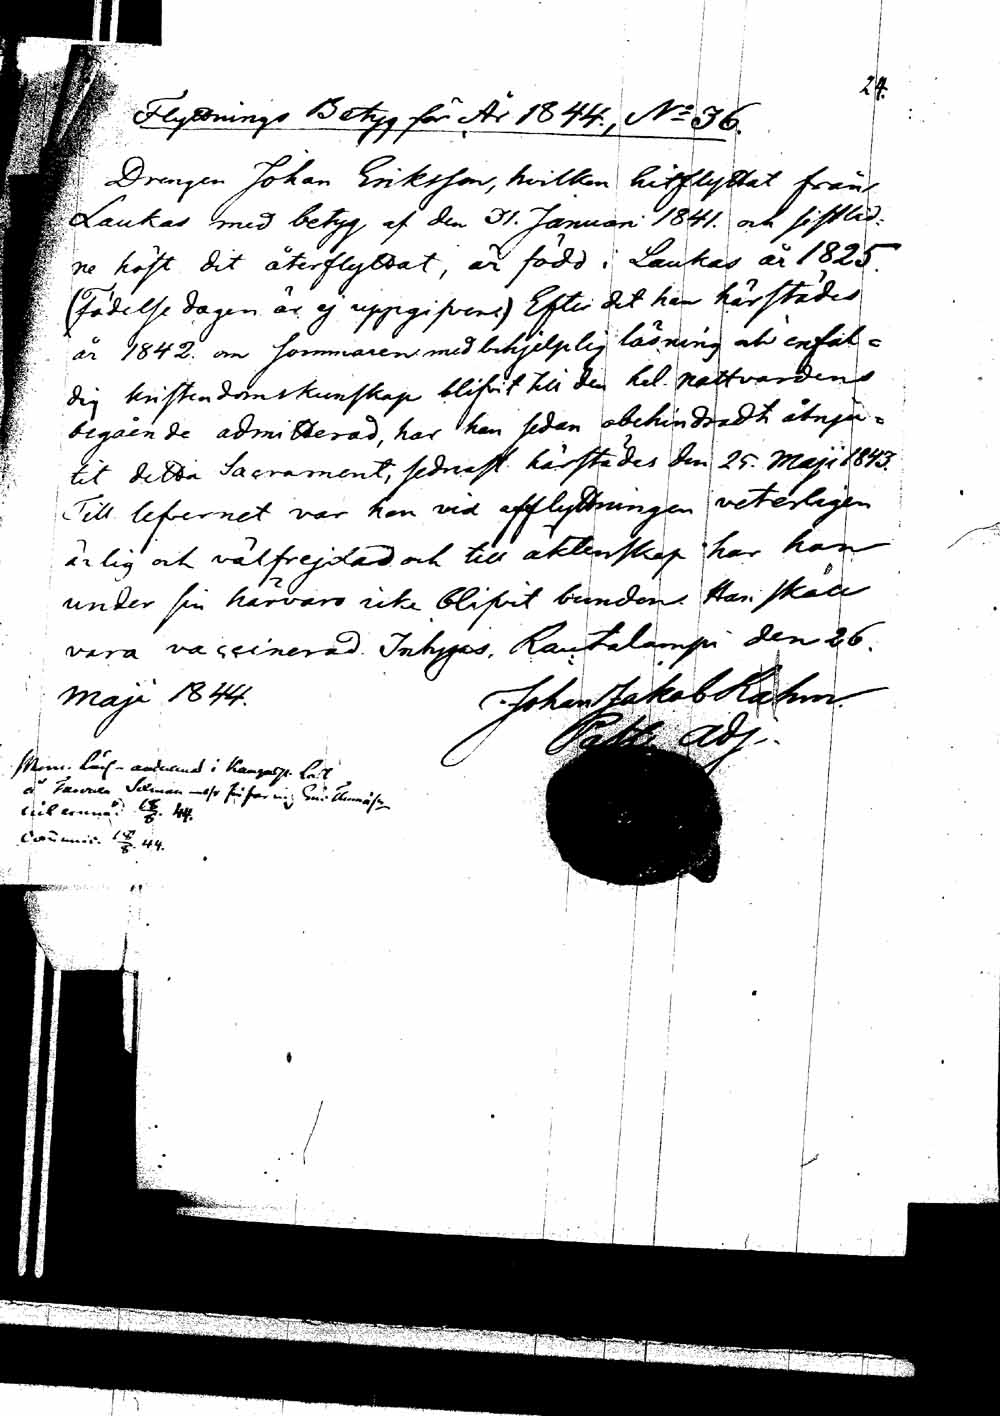 24.
Flyttnings Betyg för År 1844., No 36.
Drengen Johan Eriksson, hvilken hitflyttat från
Laukas med betyg af den 31. Januari 1841. och sistlid-
ne höst dit återflyttat, är född i Laukas år 1825.
(Födelse dagen är ej uppgifven.) Efter det han härstädes
år 1842. om sommaren med behjelplig läsning och enfal-
dig kristendomskunskap blifvit till den hel. nattvardens
begående admitterad, har han sedan obehindradt åtnju-
tit detta Sacrament, sednast härstädes den 25. Maji 1843.
Till lefvernet var han vid afflyttningen veterligen
ärlig och välfrejdad och till äktenskap har han
under sin härvaro icke blifvit bunden. Han skall
vara vaccinerad. Intygas, Rautalampi den 26.
Maji 1844. Johan Jakob Rahm.
Past. Adj.
i
18/8. 44.
18/8. 44.